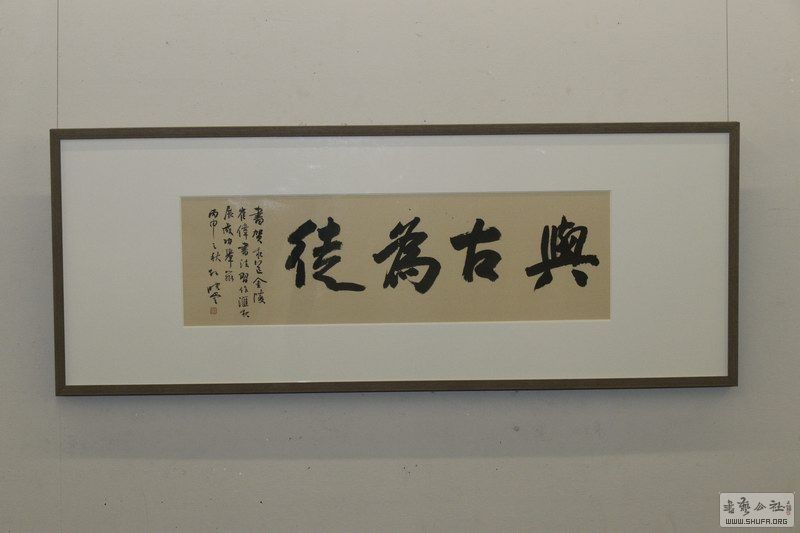 與古為徒
書賀
崔偉書法習作滙
展成功舉
丙申之秋
書藝公社
WWW.SHUFA.ORG